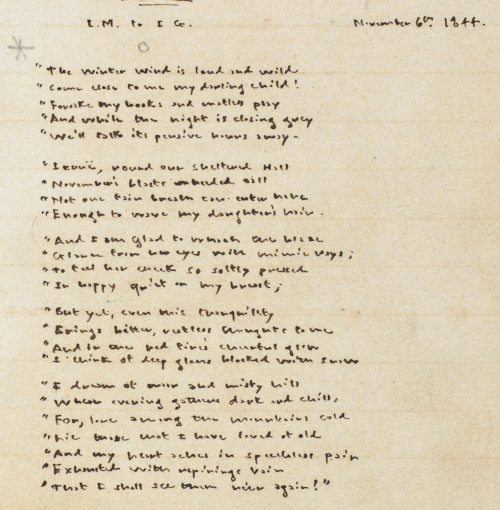 I.M. to I G.
November 6th 1844.
"The winter wind is loud and wild
"Come close to me my darling child!
"Forsake thy books and mateless play
"And while the night is closing grey
"We'll talk its pensive hours away-
"Iernë, round our sheltered Hall
"November's blasts unheeded call
"Not one faint breath can enter here
"Enough to wave my daughter's hair.
"And I am glad to watch the blaze
"Glance from her eyes with mimic rays;
"To feel her cheek so softly pressed
"In happy quiet on my breast;
"But yet, even this tranquility
"Brings bitter, restless thoughts to me
"And in the red fire's cheerful glow
"I think of deep glens blocked with snow
"I dream of moor and misty hill
"Where evening gathers dark and chill,
"For, lone among the mountains cold
"Lie those that I have loved of old
"And my heart aches in speechless pain
"Exhausted with repinings vain
"That I shall see them ne'er again!"